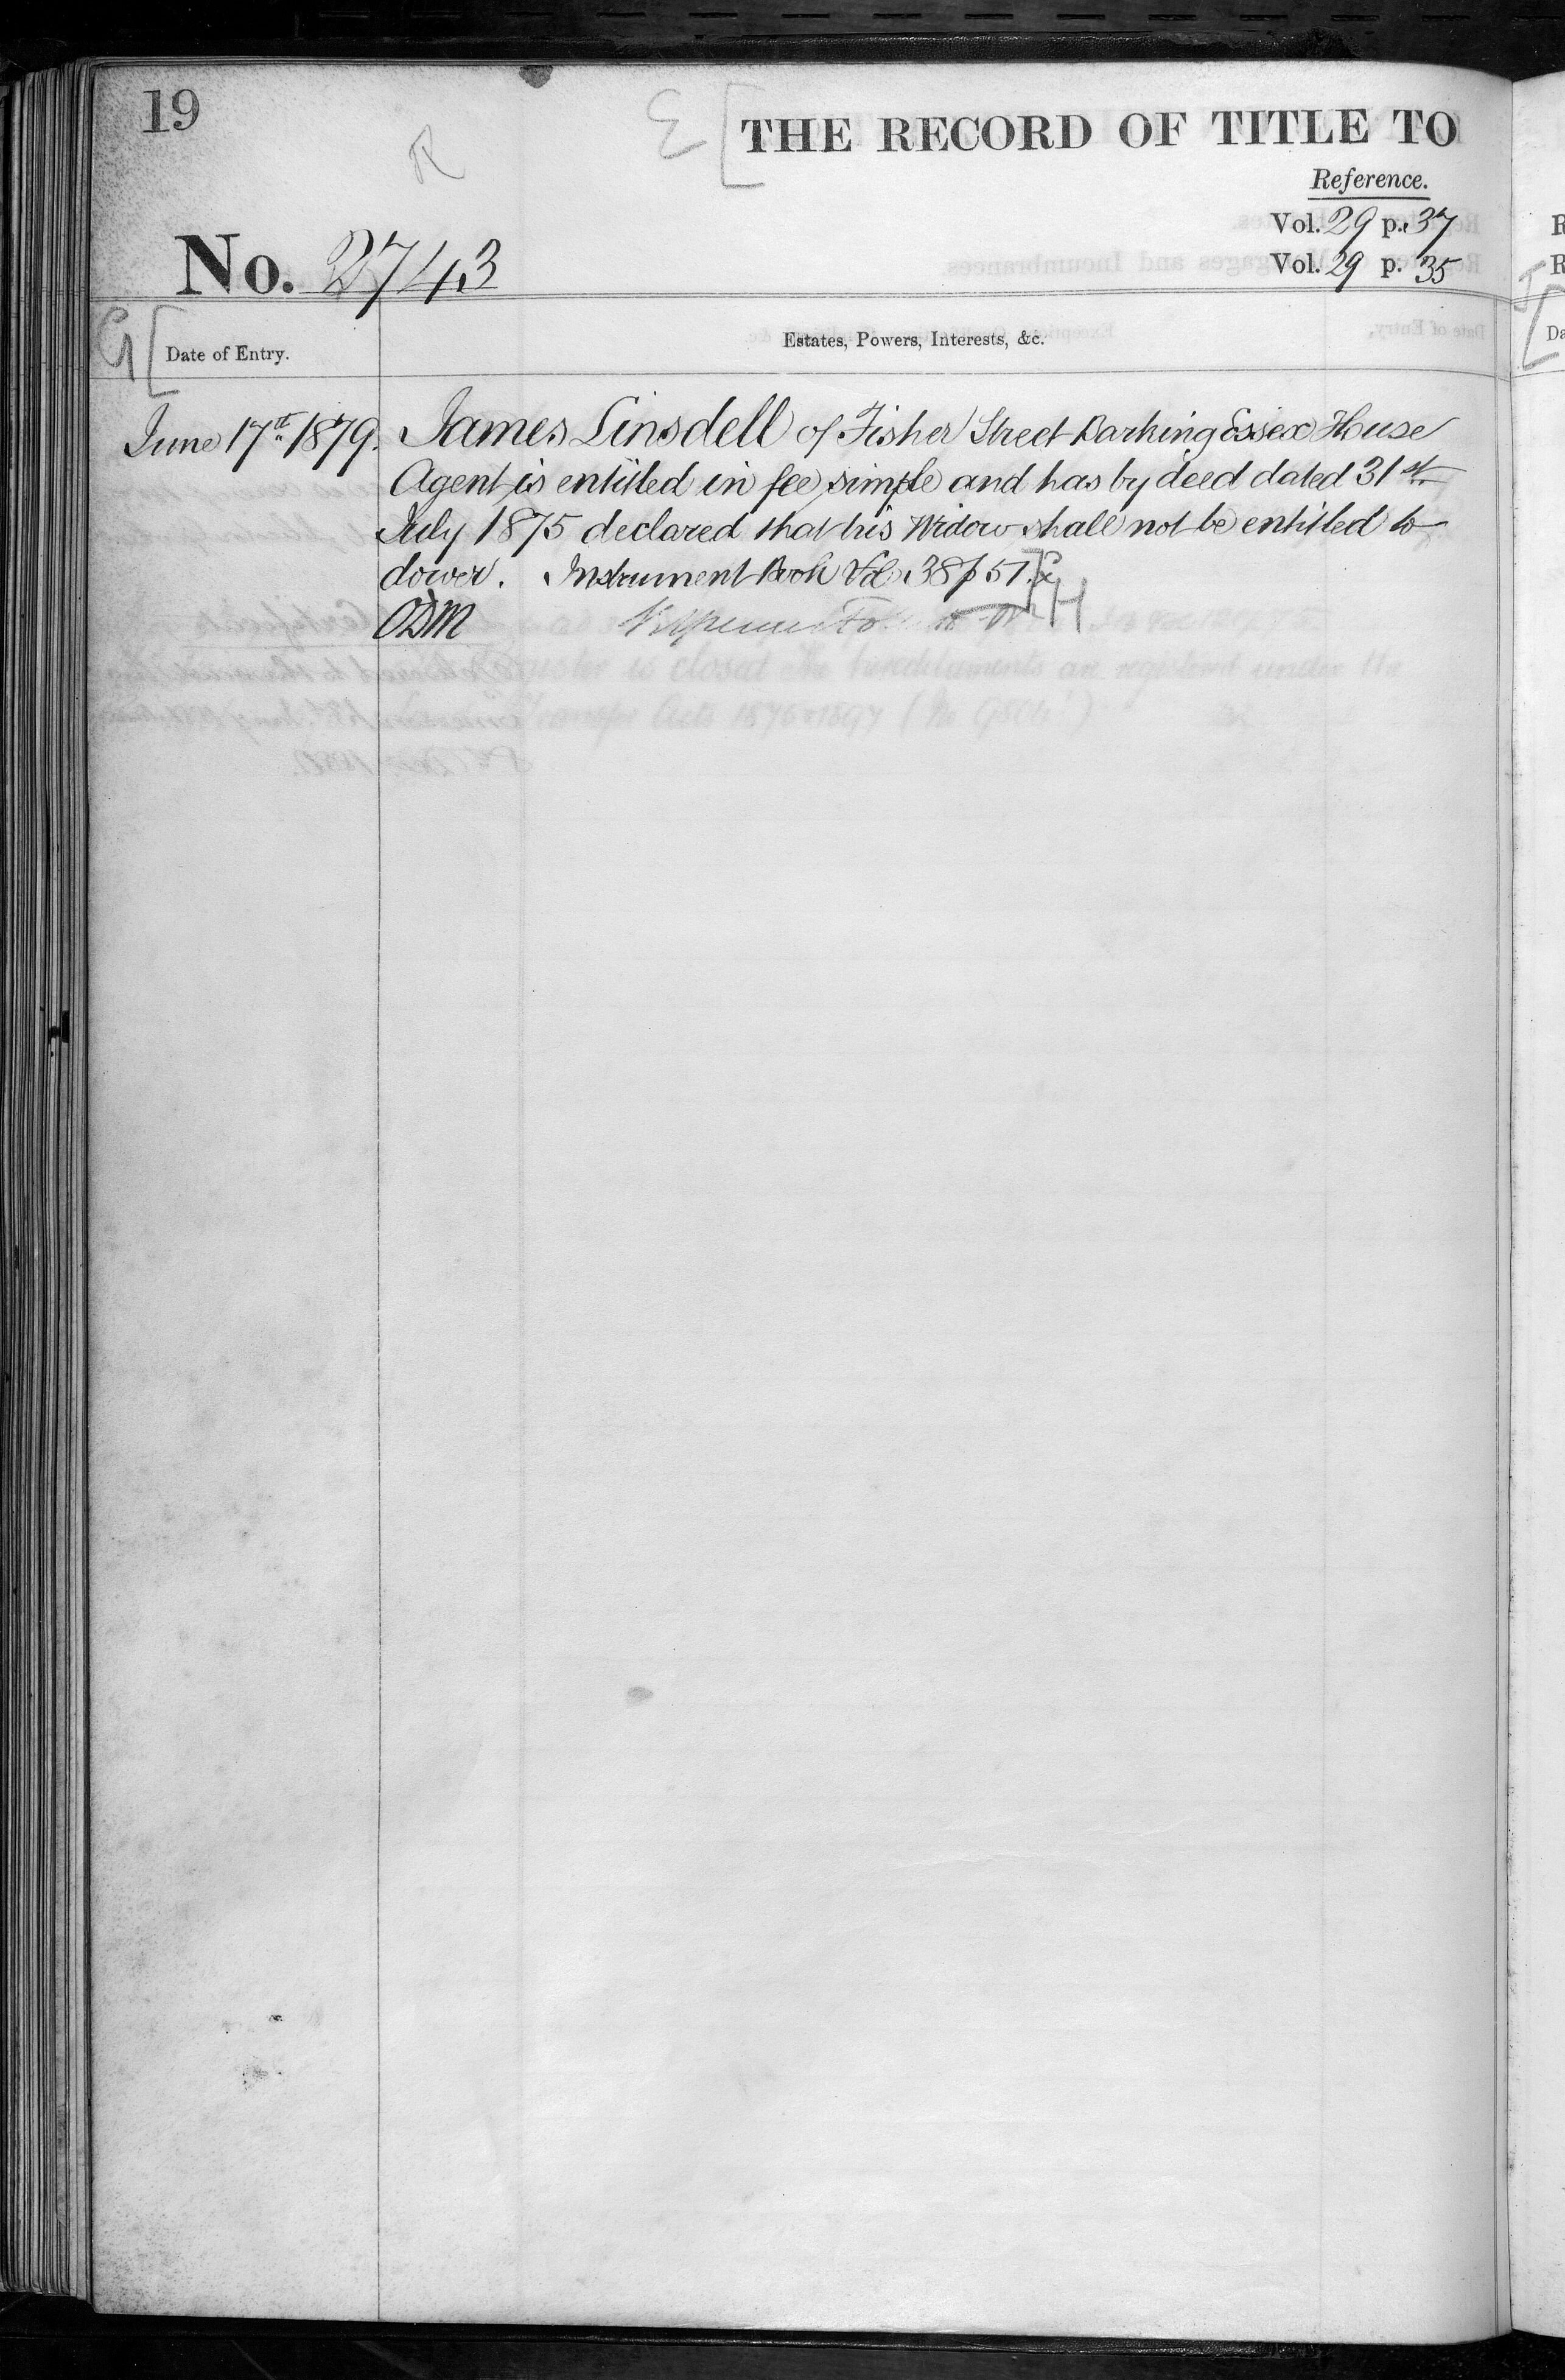 19
R
E [ THE RECORD OF TITLE TO
Reference.
Vol. 29 p. 37
No. 2743
Vol. 29 p. 35
G [
Date of Entry.
Estates, Powers, Interests, &c.
June 17th 1879. James Linsdell of Fisher Street Barking Essex House
Agent is entitled in fee simple and has by deed dated 31st
July 1875 declared that his Widow shall not be entitled to
dower. Instrument Book Vol. 38 p 51.
ODM
H
register is closed The hereditaments are registered under the
Land Transfer Acts 1875 & 1897